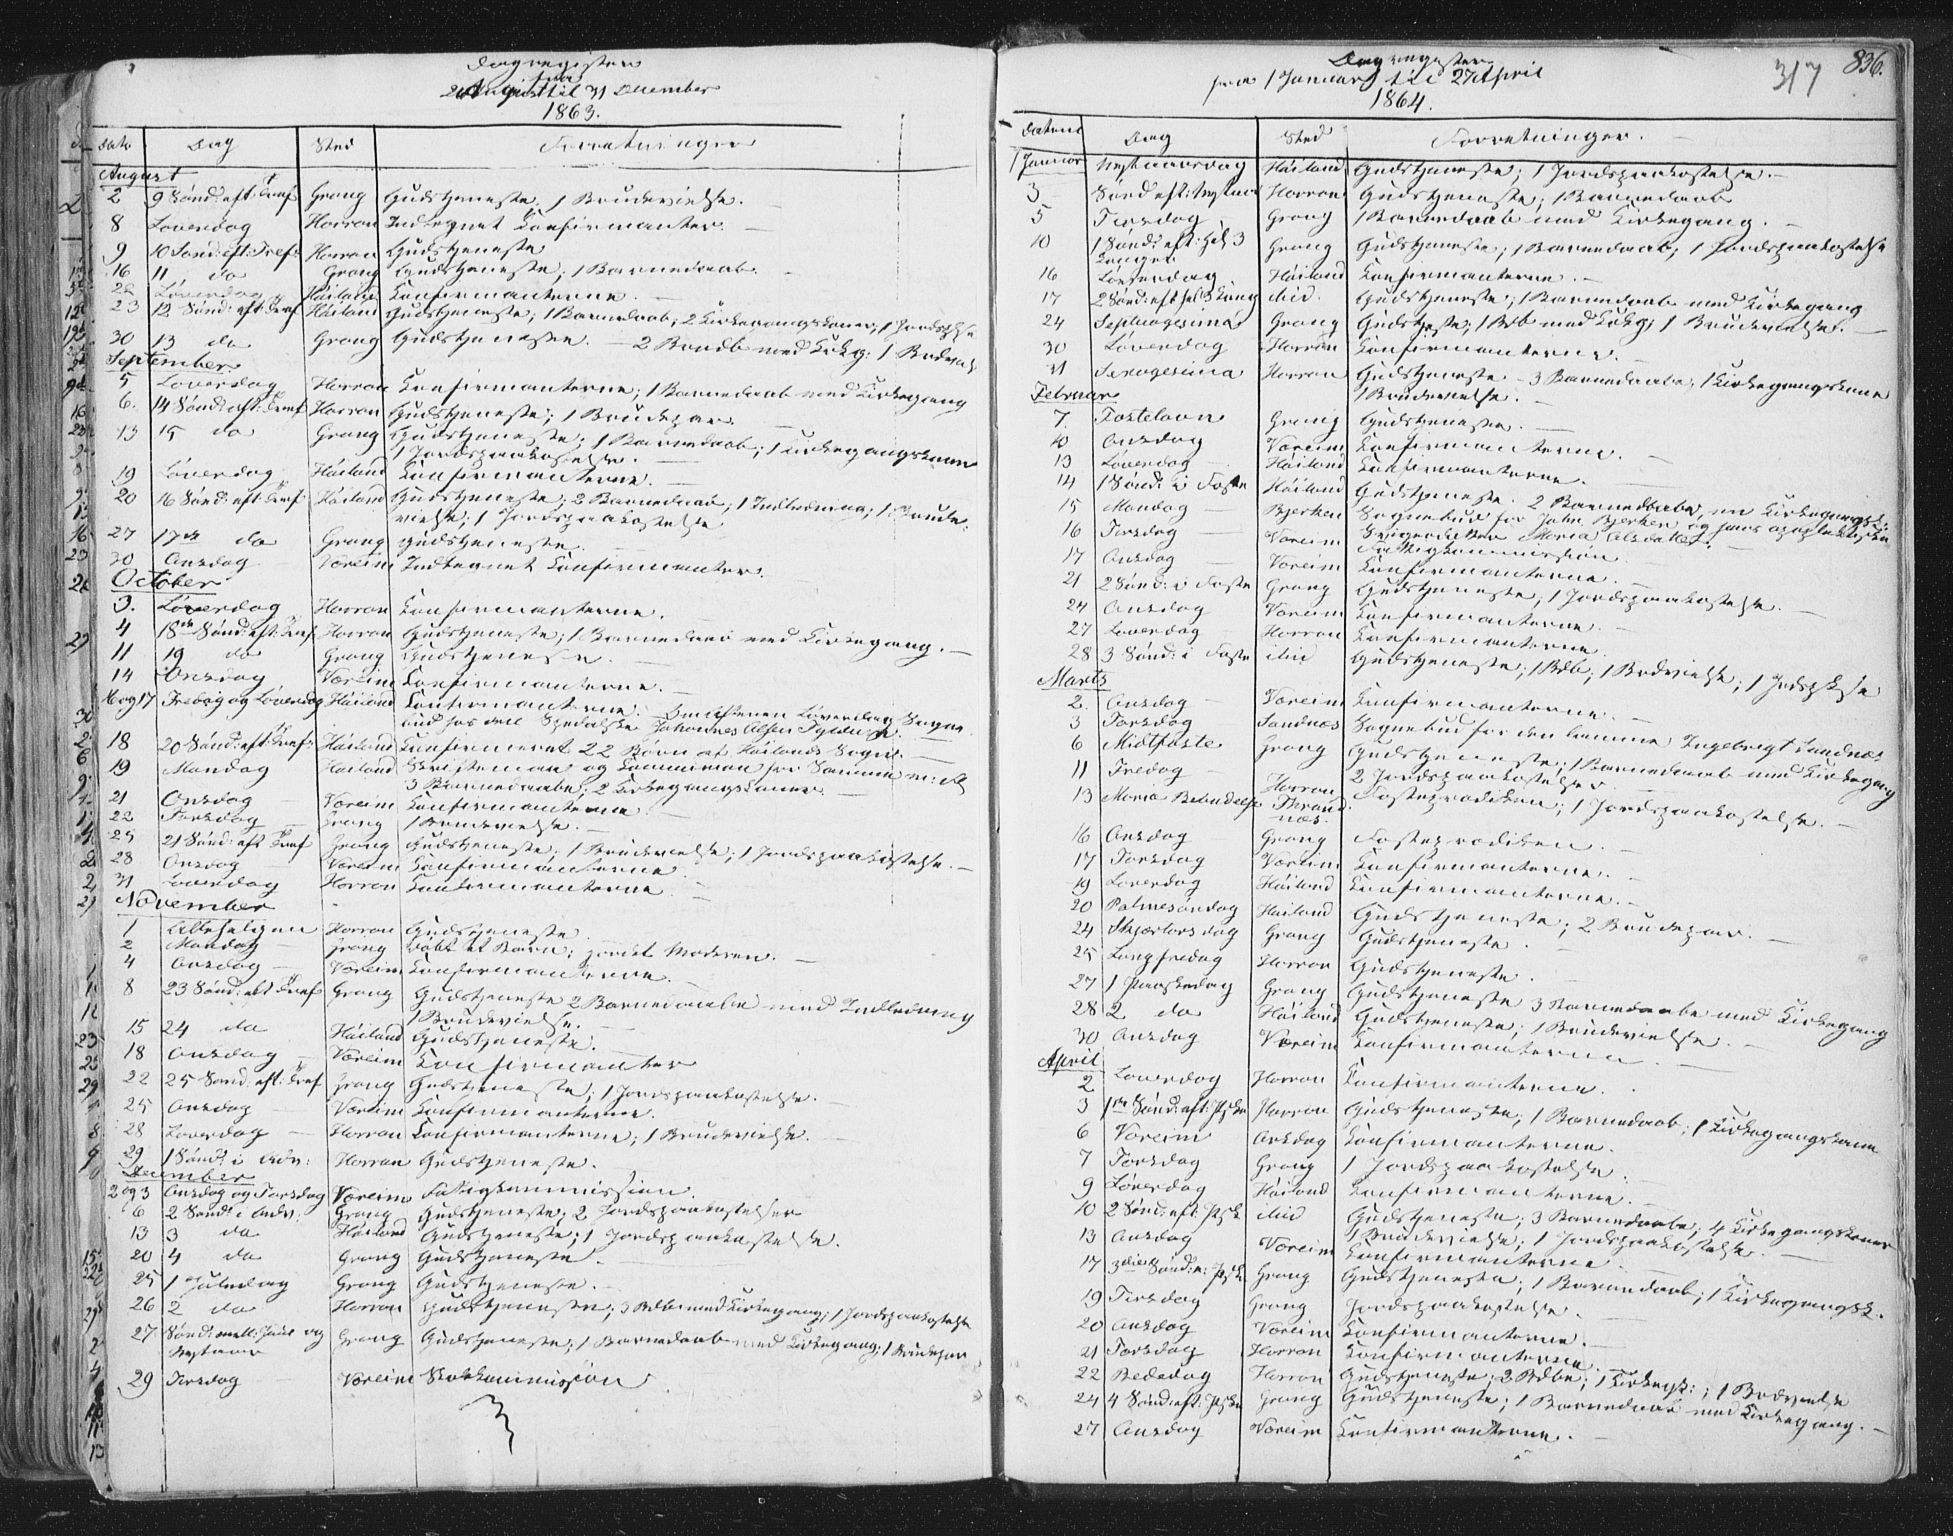 Dagregister
fra
2 August til 31 December
1863.
Dato Dag Sted Forretninger
August
2 9 Sønd: eft: Tref Grong Gudstjeneste, 1 Brudevielse.
8 Løverdag Harran Indtegnet Konfirmanter.
9 10 Sønd: eft: Tref: Harran Gudstjeneste
16 11 do Grong Gudstjeneste; 1 Barnedaab.
22 Løverdag Høiland Konfirmanterne.
23 12 Sønd: eft: Tref Høiland Gudstjeneste; 1 Barnedaab, 2 Kirkegangskoner; 1 Jordsp
30 13 do Grong Gudstjeneste. 2 Barndb med Kirkg: 1 Brdviels
September
5 Løverdag Harran Konfirmanterne; 1 Barnedaab med Kirkegang
6. 14 Sønd: eft: Tref Harran Gudstjeneste; 1 Brudepar
13 15 do Grong Gudstjeneste; 1 Barnedaab; 1 Kirkegangskone
1 Jordspaakastelse.
19 Løverdag Høiland Konfirmanterne.
20 16 Sønd: eft: Tref Høiland Gudstjeneste; 2 Barnedaab; 1 Indledning; 1 Brude-
vielse; 1 Jordspaakastelse
27 17de do Grong Gudstjeneste.
30 Onsdag Væreim Indtegnet Konfirmanter.
October
3. Løverdag Harran Konfirmanterne.
4 18de Sønd: eft: Tref Harran Gudstjeneste; 1 Barnedaab med Kirkegang.
11 19 do Grong Gudstjeneste.
14 Onsdag Væreim Konfirmanterne.
16 og 17 Fredag og Løverdag Høiland Konfirmanterne. Om Aftenen Løverdag Sogne-
bud hos den Spedalske Johannes Olsen
18 20 Sønd: eft: Tref: Høiland Konfirmeret 22 Børn af Høilands Sogn.
19 Mandag Høiland Skriftemaal og Kommunion for Samme
3 Barnedaabe; 2 Kirkegangskoner.
21 Onsdag Væreim Konfirmanterne.
22 Torsdag Grong 1 Brudevielse.
25 21 Sønd: eft Tref Grong Gudstjeneste; 1 Brudevielse; 1 Jordspaakastelse.
28 Onsdag Væreim Konfirmanterne
31 Løverdag Harran Konfirmanterne.
November
1 Allehelgen Harran Gudstjeneste
2 Mandag Grong Døbt et Barn; jordet Moderen.
4 Onsdag Væreim Konfirmanterne.
8 23 Sønd: eft Tref Grong Gudstjeneste 2 Barnedaabe med Indledning
1 Brudevielse.
15 24 do Høiland Gudstjeneste.
18 Onsdag Væreim Konfirmanter
22 25 Sønd: eft: Tref Grong Gudstjeneste; 1 Jordspaakastelse.
25 Onsdag Væreim Konfirmanterne.
28 Løverdag Harran Konfirmanterne; 1 Brudevielse.
29 1 Sønd: i Adv: Harran Gudstjeneste.
December
2 og 3 Onsdag og Torsdag Væreim Fattigkommission.
6 2 Sønd: i Adv: Grong Gudstjeneste; 2 Jordspaakastelser
13 3 do Høiland Gudstjeneste; 1 Jordspaakastelse.
20 4 do Grong Gudstjeneste
25 1 Juledag Grong Gudstjeneste.
26 2 do Harran Gudstjeneste; 3 Bdbe med Kirkegang; 1 Jordspaakastelse
27 Sønd: mell: Juul og Grong Gudstjeneste; 1 Barnedaab med Kirkegang; 1 Brudepar
Nytaar
29 Tirsdag Væreim Skolekommission
836.
317
Dagregister
fra 1 Januar til 27 April
1864.
Datum Dag Sted Forretninger.
1 Januar Nytaarsdag Høiland Gudstjeneste; 1 Jordspaakastelse.
3 Sønd eft: Nytaar Harran Gudstjeneste; 1 Barnedaab
5 Tirsdag Grong 1 Barnedaab med Kirkegang.
10 1 Sønd: eft: Hel 3 Grong Gudstjeneste; 1 Barnedaab; 1 Jordspaakastelse
Konger
16 Løverdag Høiland Konfirmanterne.
17 2 Sønd: eft hel 3 Kong ibid. Gudstjeneste; 1 Barnedaab med Kirkegang
24 Septuagesima Grong Gudstjeste; 1 Bdb med Kirkg; 1 Brudevielse.
30 Løverdag Harran Konfirmanterne.
31 Sexagesima Harran Gudstjeneste 3 Barnedaabe; 1 Kirkegangskone
1 Brudevielse.
Februar
7. Fastelavn Grong Gudstjeneste.
10 Onsdag Væreim Konfirmanterne.
13 Løverdag Høiland Konfirmanterne.
14 1 Sønd: i Faste Høiland Gudstjeneste. 2 Barnedaabe, en Kirkegangsk:
15 Mandag Bjerken Sognebud for John Bjerken og hans apoplektiske
16 Tirsdag Væreim Maria Olsdatter.
Fattigkommission
17 Onsdag Væreim Konfirmanterne.
21 2 Sønd: i Faste Grong Gudstjeneste; 1 Jordspaakastelse.
24 Onsdag Væreim Konfirmanterne.
27 Løverdag Harran Konfirmanterne.
28 3 Sønd: i Faste ibid Gudstjeneste; 1 Bdb; 1 Brdvielse; 1 Jrdspkste
Marts
2. Onsdag Væreim Konfirmanterne.
3 Torsdag Sandnæs Sognebud for den lamme Ingebrigt Sandnæs
6 Midtfaste Grong Gudstjeneste; 1 Barnedaab med Kirkegang
2 Jordspaakastelser.
11 Fredag Harran Fasteprædiken; 1 Jordspaakastelse.
13 Maria Bebudelse Thrand
næs.
16 Onsdag Grong Fasteprædiken.
17 Torsdag Væreim Konfirmanterne.
19 Løverdag Høiland Konfirmanterne.
20 Palmesøndag Høiland Gudstjeneste; 2 Brudepar.
24 Skjærtorsdag Grong Gudstjeneste.
25 Langfredag Harran Gudstjeneste.
27 1 Paaskedag Grong Gudstjeneste 3 Barnedaabe med Kirkegang
28 2 do Høiland Gudstjeneste; 1 Brudevielse.
30 Onsdag Væreim Konfirmanterne
April
2 Løverdag Harran Konfirmanterne.
3 1ste Sønd: eft: Pske Harran Gudstjeneste; 1 Barnedaab; 1 Kirkegangskone
6 Væreim Onsdag Konfirmanterne.
7 Torsdag Grong 1 Jordspaakastelse.
9 Løverdag Høiland Konfirmanterne.
10 2 Sønd: eft: Pske ibid Gudstjeneste; 3 Barnedaabe; 4 Kirkegangskoner
1 Brudevielse; 1 Jordspaakastelse.
13 Onsdag Væreim Konfirmanterne
17 3die Sønd: e: Psk Grong Gudstjeneste; 1 Barnedaab; 1 Kirkegangsk.
19 Tirsdag Grong Jordspaakastelse.
20 Onsdag Væreim Konfirmanterne.
21 Torsdag Harran Konfirmanterne.
22 Bededag Harran Gudstjeneste; 2 Bdbe; 1 Kirkegsk:; 1 Brdvielse
24 4 Sønd: eft: Pske Grong Gudstjeneste; 1 Barnedaab med Kirkegang.
27 Onsdag Væreim Konfirmanterne.